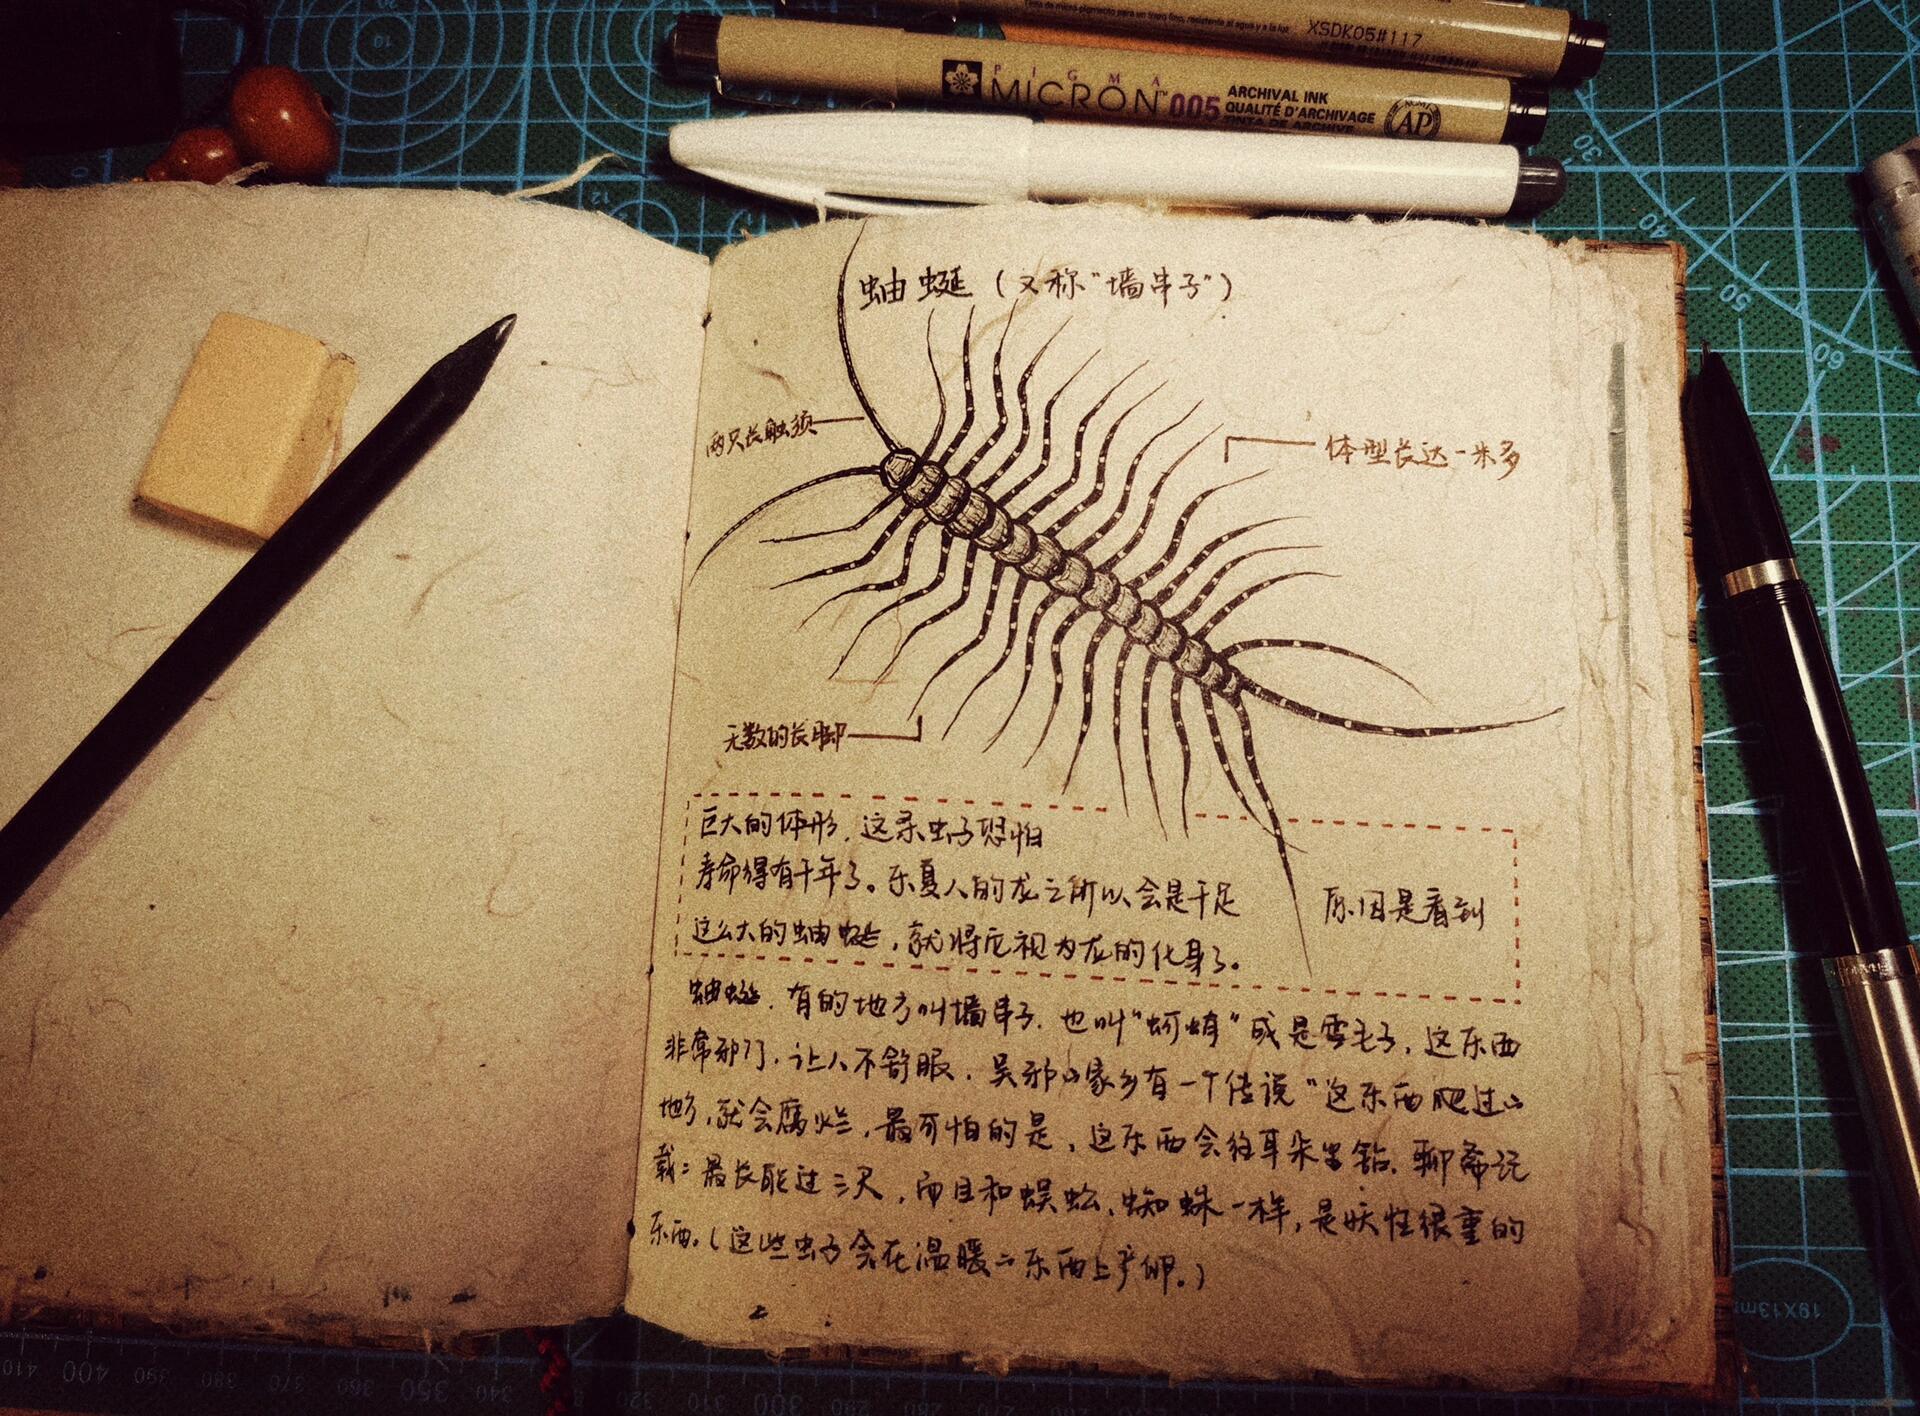 XSDK05#117
PIGMA
MICRON 005
ARCHIVAL INK
QUALITÉ D'ARCHIVAGE
TINTA DE ARCHIVE
AP
蚰蜒（又称"墙串子"）
两只长触须
体型长达一米多
无数的长脚
巨大的体形，这条虫子恐怕
寿命得有千年了。东夏人的龙之所以会是千足 原因是看到
这么大的蚰蜒，就将它视为龙的化身了。
蚰蜒，有的地方叫墙串子，也叫"蚵蛸"或是雪毛子，这东西
非常邪门，让人不舒服，吴邪的家乡有一个传说"这东西爬过的
地方，就会腐烂，最可怕的是，这东西会往耳朵里钻，聊斋记
载：最长能过三尺，而且和蜈蚣、蜘蛛一样，是妖性很重的
东西。（这些虫子会在温暖的东西上产卵。）
30
40
50
60
10
12
19X13mm
410
400
390
380
370
360
350
340
320
310
300
290
280